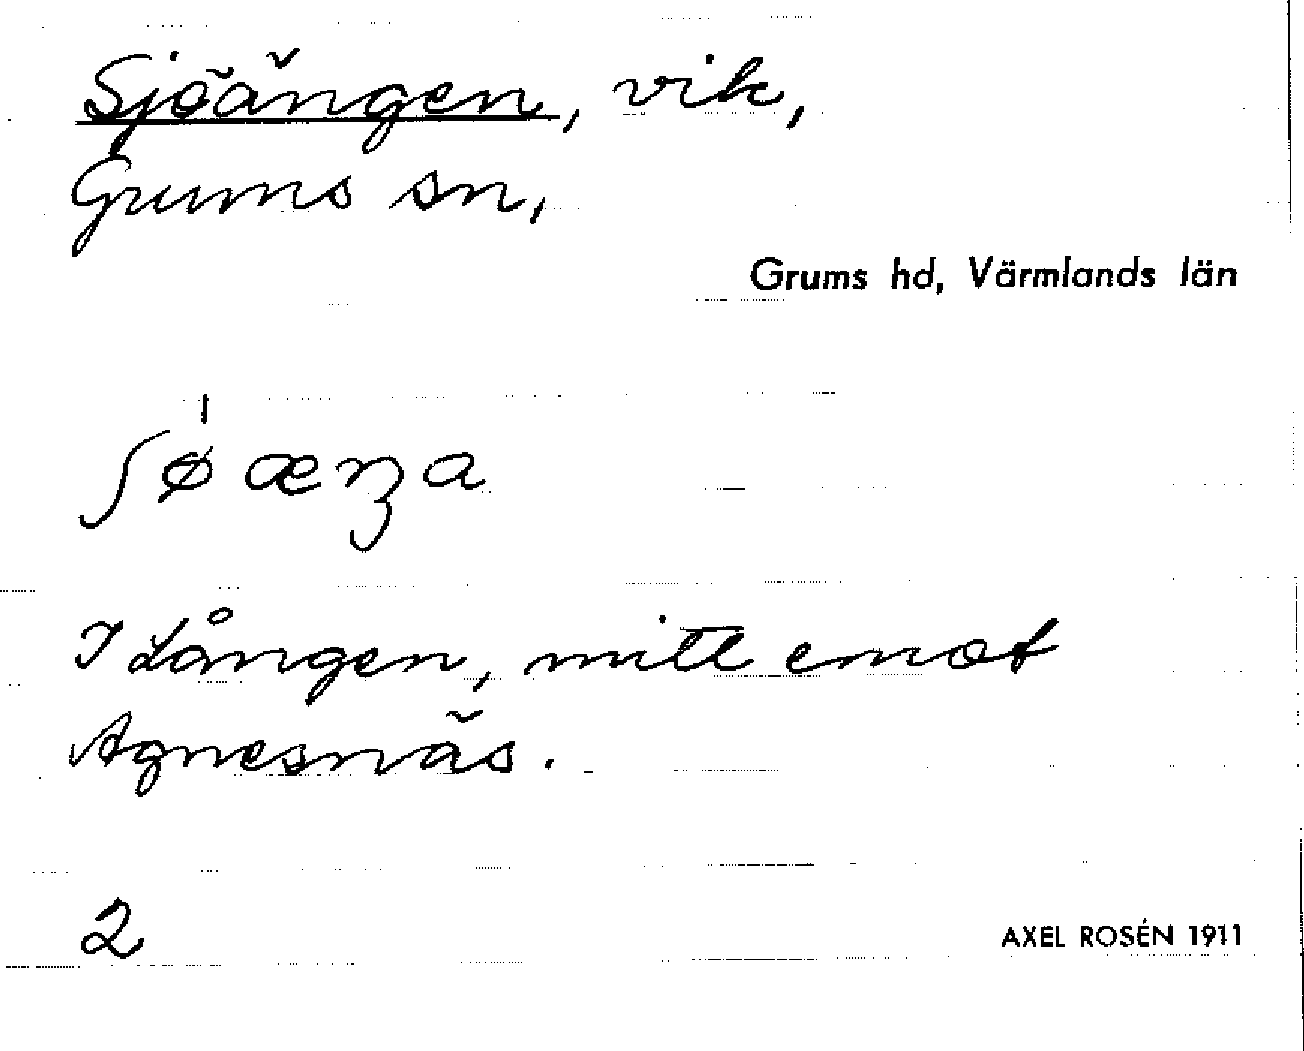 Sjöängen, vik,
Grums sn,
Grums hd, Värmlands län
ʃø̍æŋa
I Lången, mitt emot
Agnesnäs.
2
AXEL ROSÉN 1911